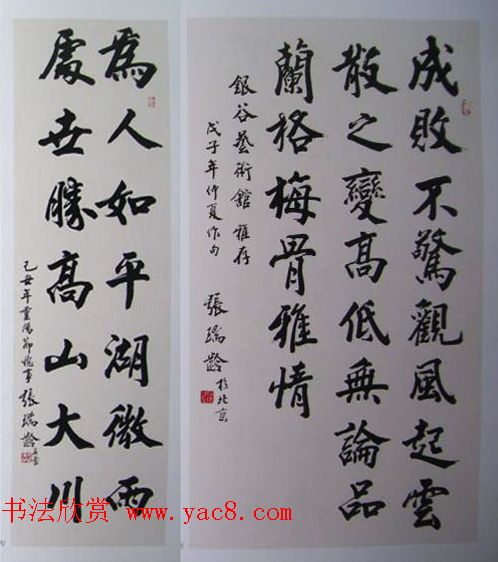 成敗不驚觀風起雲
散之變高低無論品
蘭格梅骨雅情
銀谷藝術館雅存
戊子年仲夏作句
張瑞齡於北京
為人如平湖微雨
處世勝高山大川
己丑年重陽節 張瑞齡
书法欣赏 www.yac8.com